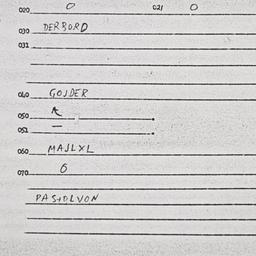 020 0 021 0
030 DERBORD
031
040 GOJDER
050 K
051 —
060 MAJLXL
070 6
PASTOLVON